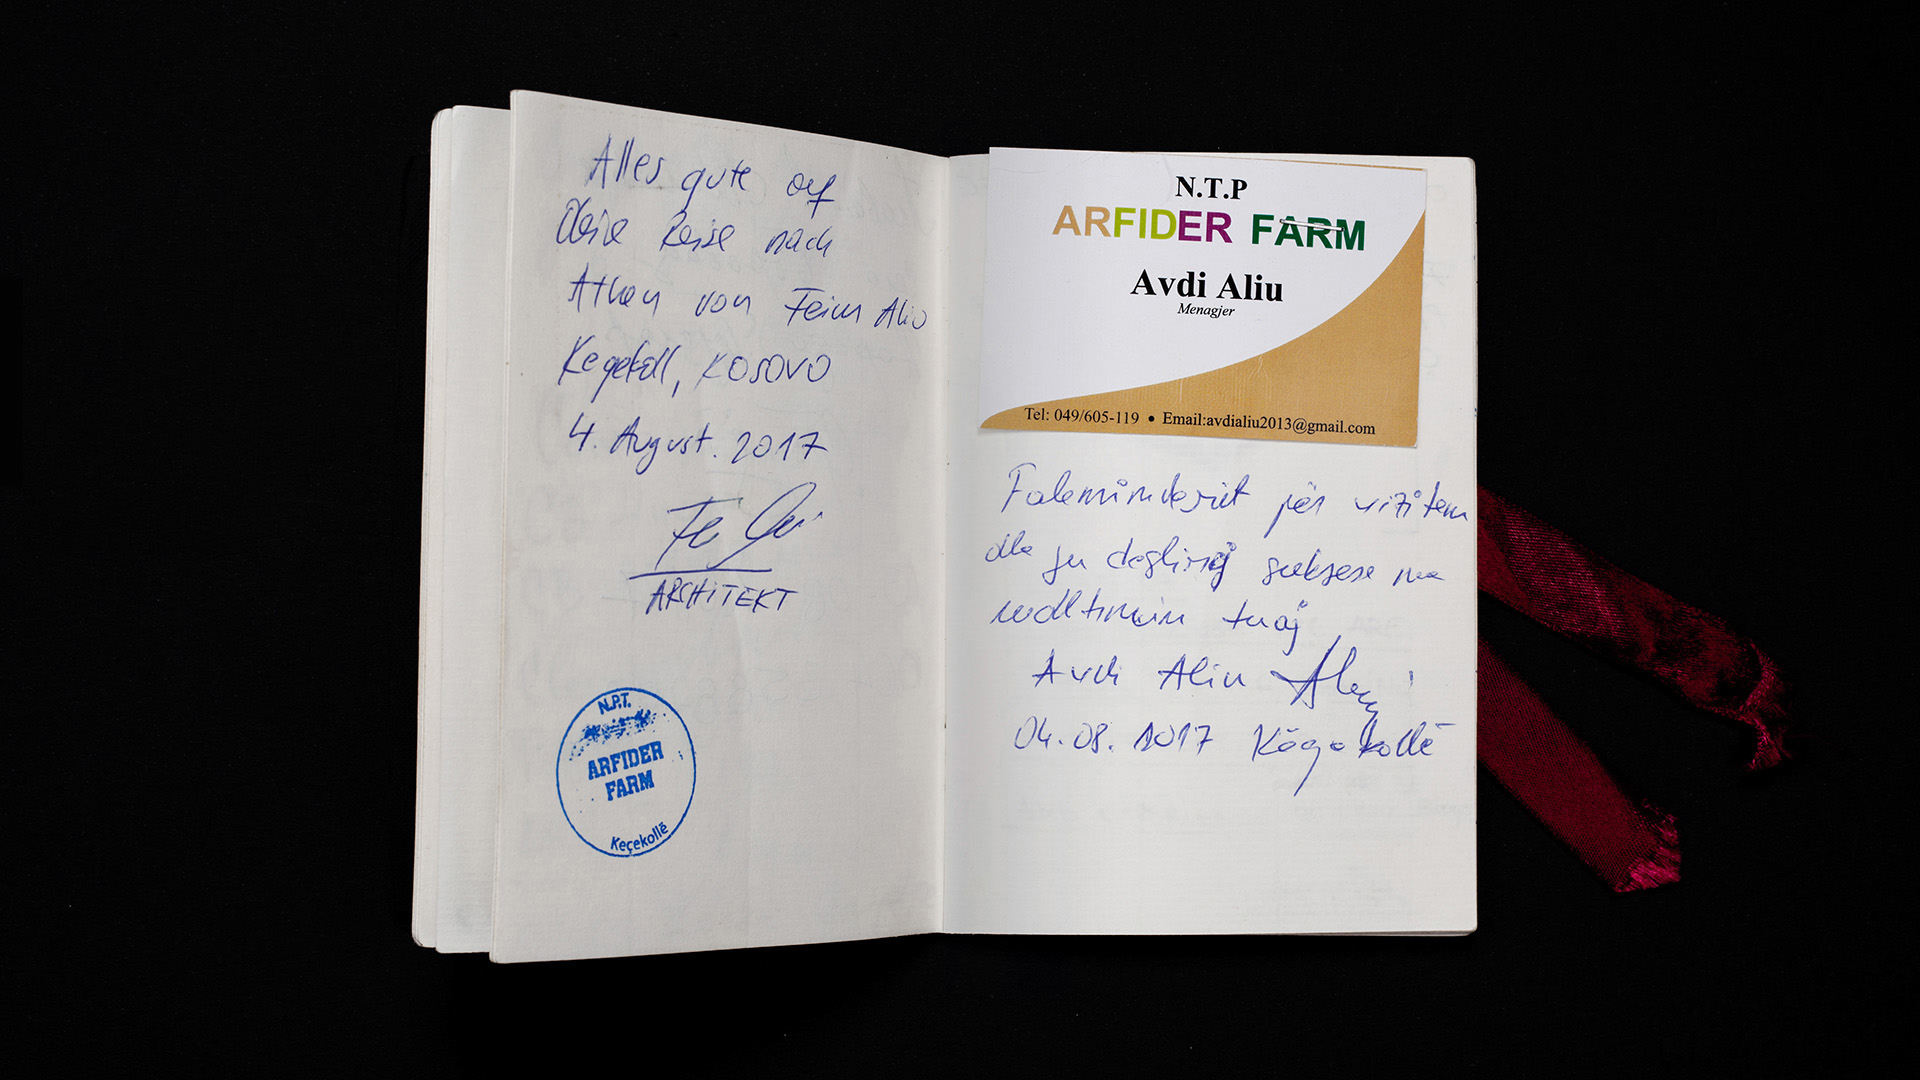 Alles gute auf
deine Reise nach
Athen von Feim Aliu
Keqekoll, KOSOVO
4. August. 2017
ARCHiTEKT
N.P.T.
ARFIDER
FARM
Keçekollë
N.T.P
ARFIDER FARM
Avdi Aliu
Menagjer
Tel: 049/605-119 • Email:avdialiu2013@gmail.com
Faleminderit për vizitem
dhe ju deshiroj suksese ne
udhtimin tuaj
Avdi Aliu
04.08.2017 Kёqekollё